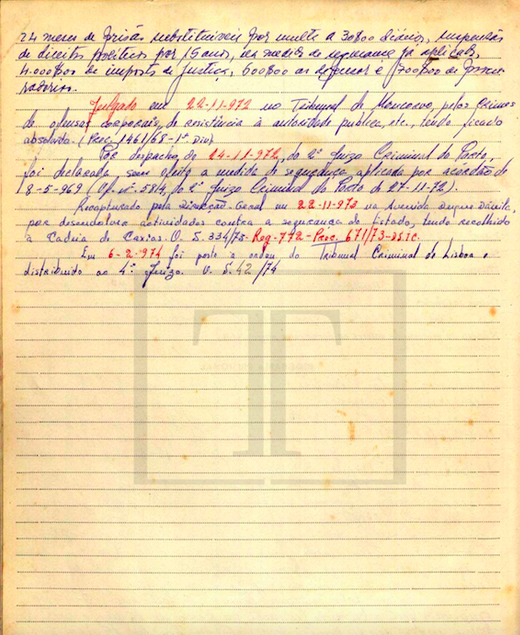 24 meses de prisão substituíveis por multa a 30$00 diários, suspensão
de direitos políticos por 15 anos, na medida de segurança já aplicada,
4.000$00 de imposto de Justiça, 500$00 ao defensor e 700$00 de procu-
radoria.
Julgado em 22-11-972 no Tribunal de Moncorvo, pelos crimes
de ofensas corporais, de resistência à autoridade pública, etc, tendo ficado
absolvido. (Proc. 1461/68-1ª Div)
Por despacho de 24-11-972, do 2º Juízo Criminal do Porto,
foi declarada sem efeito a medida de segurança aplicada por acordão de
8-5-969 (Of. nº 584, do 2º Juízo Criminal do Porto de 27-11-72).
Recapturado pela Direcção-Geral em 22-11-973 na Avenida
por desenvolver actividades contra a segurança do Estado, tendo recolhido
à Cadeia de Caxias. O.S. 334/73-Reg-772-Proc. 671/73-DSIC.
Em 6-2-974 foi posto à ordem do Tribunal Criminal de Lisboa e
distribuido ao 4º Juízo. O.S. 42/74